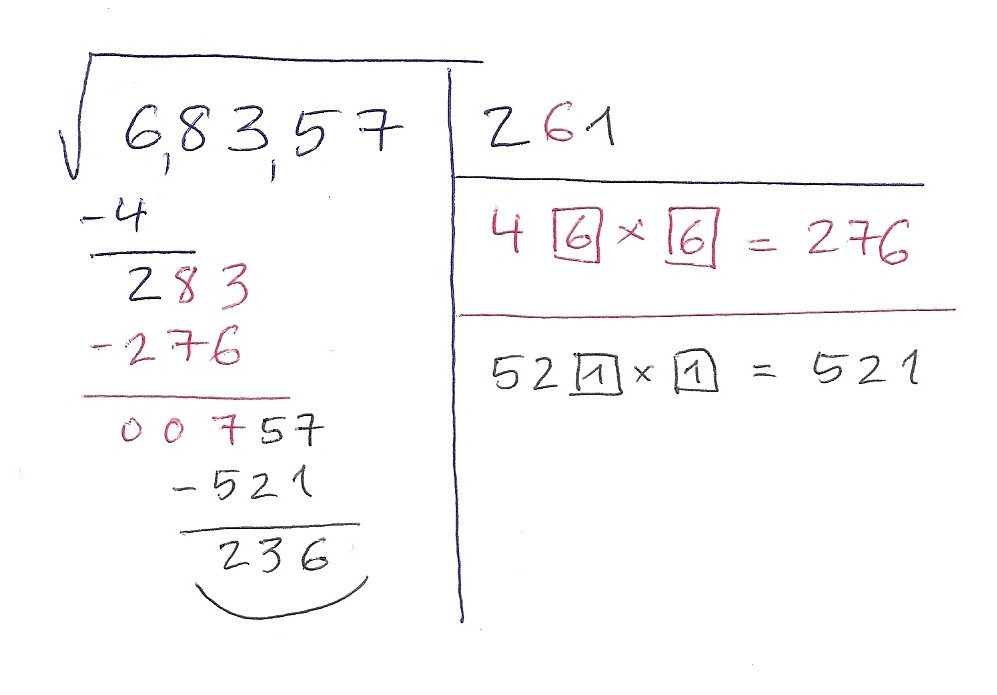 √6,83,57 261
-4
4 6 × 6 = 276
283
-276
52 1 × 1 = 521
00757
-521
236